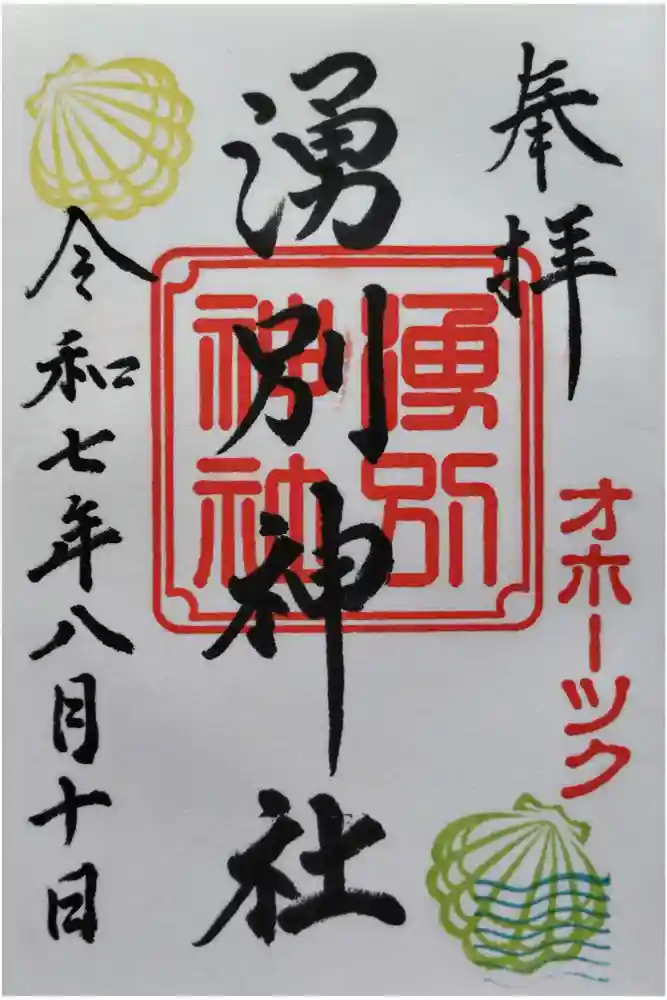 奉拝
オホーツク
湧別神社
湧別
神社
令和七年八月十日